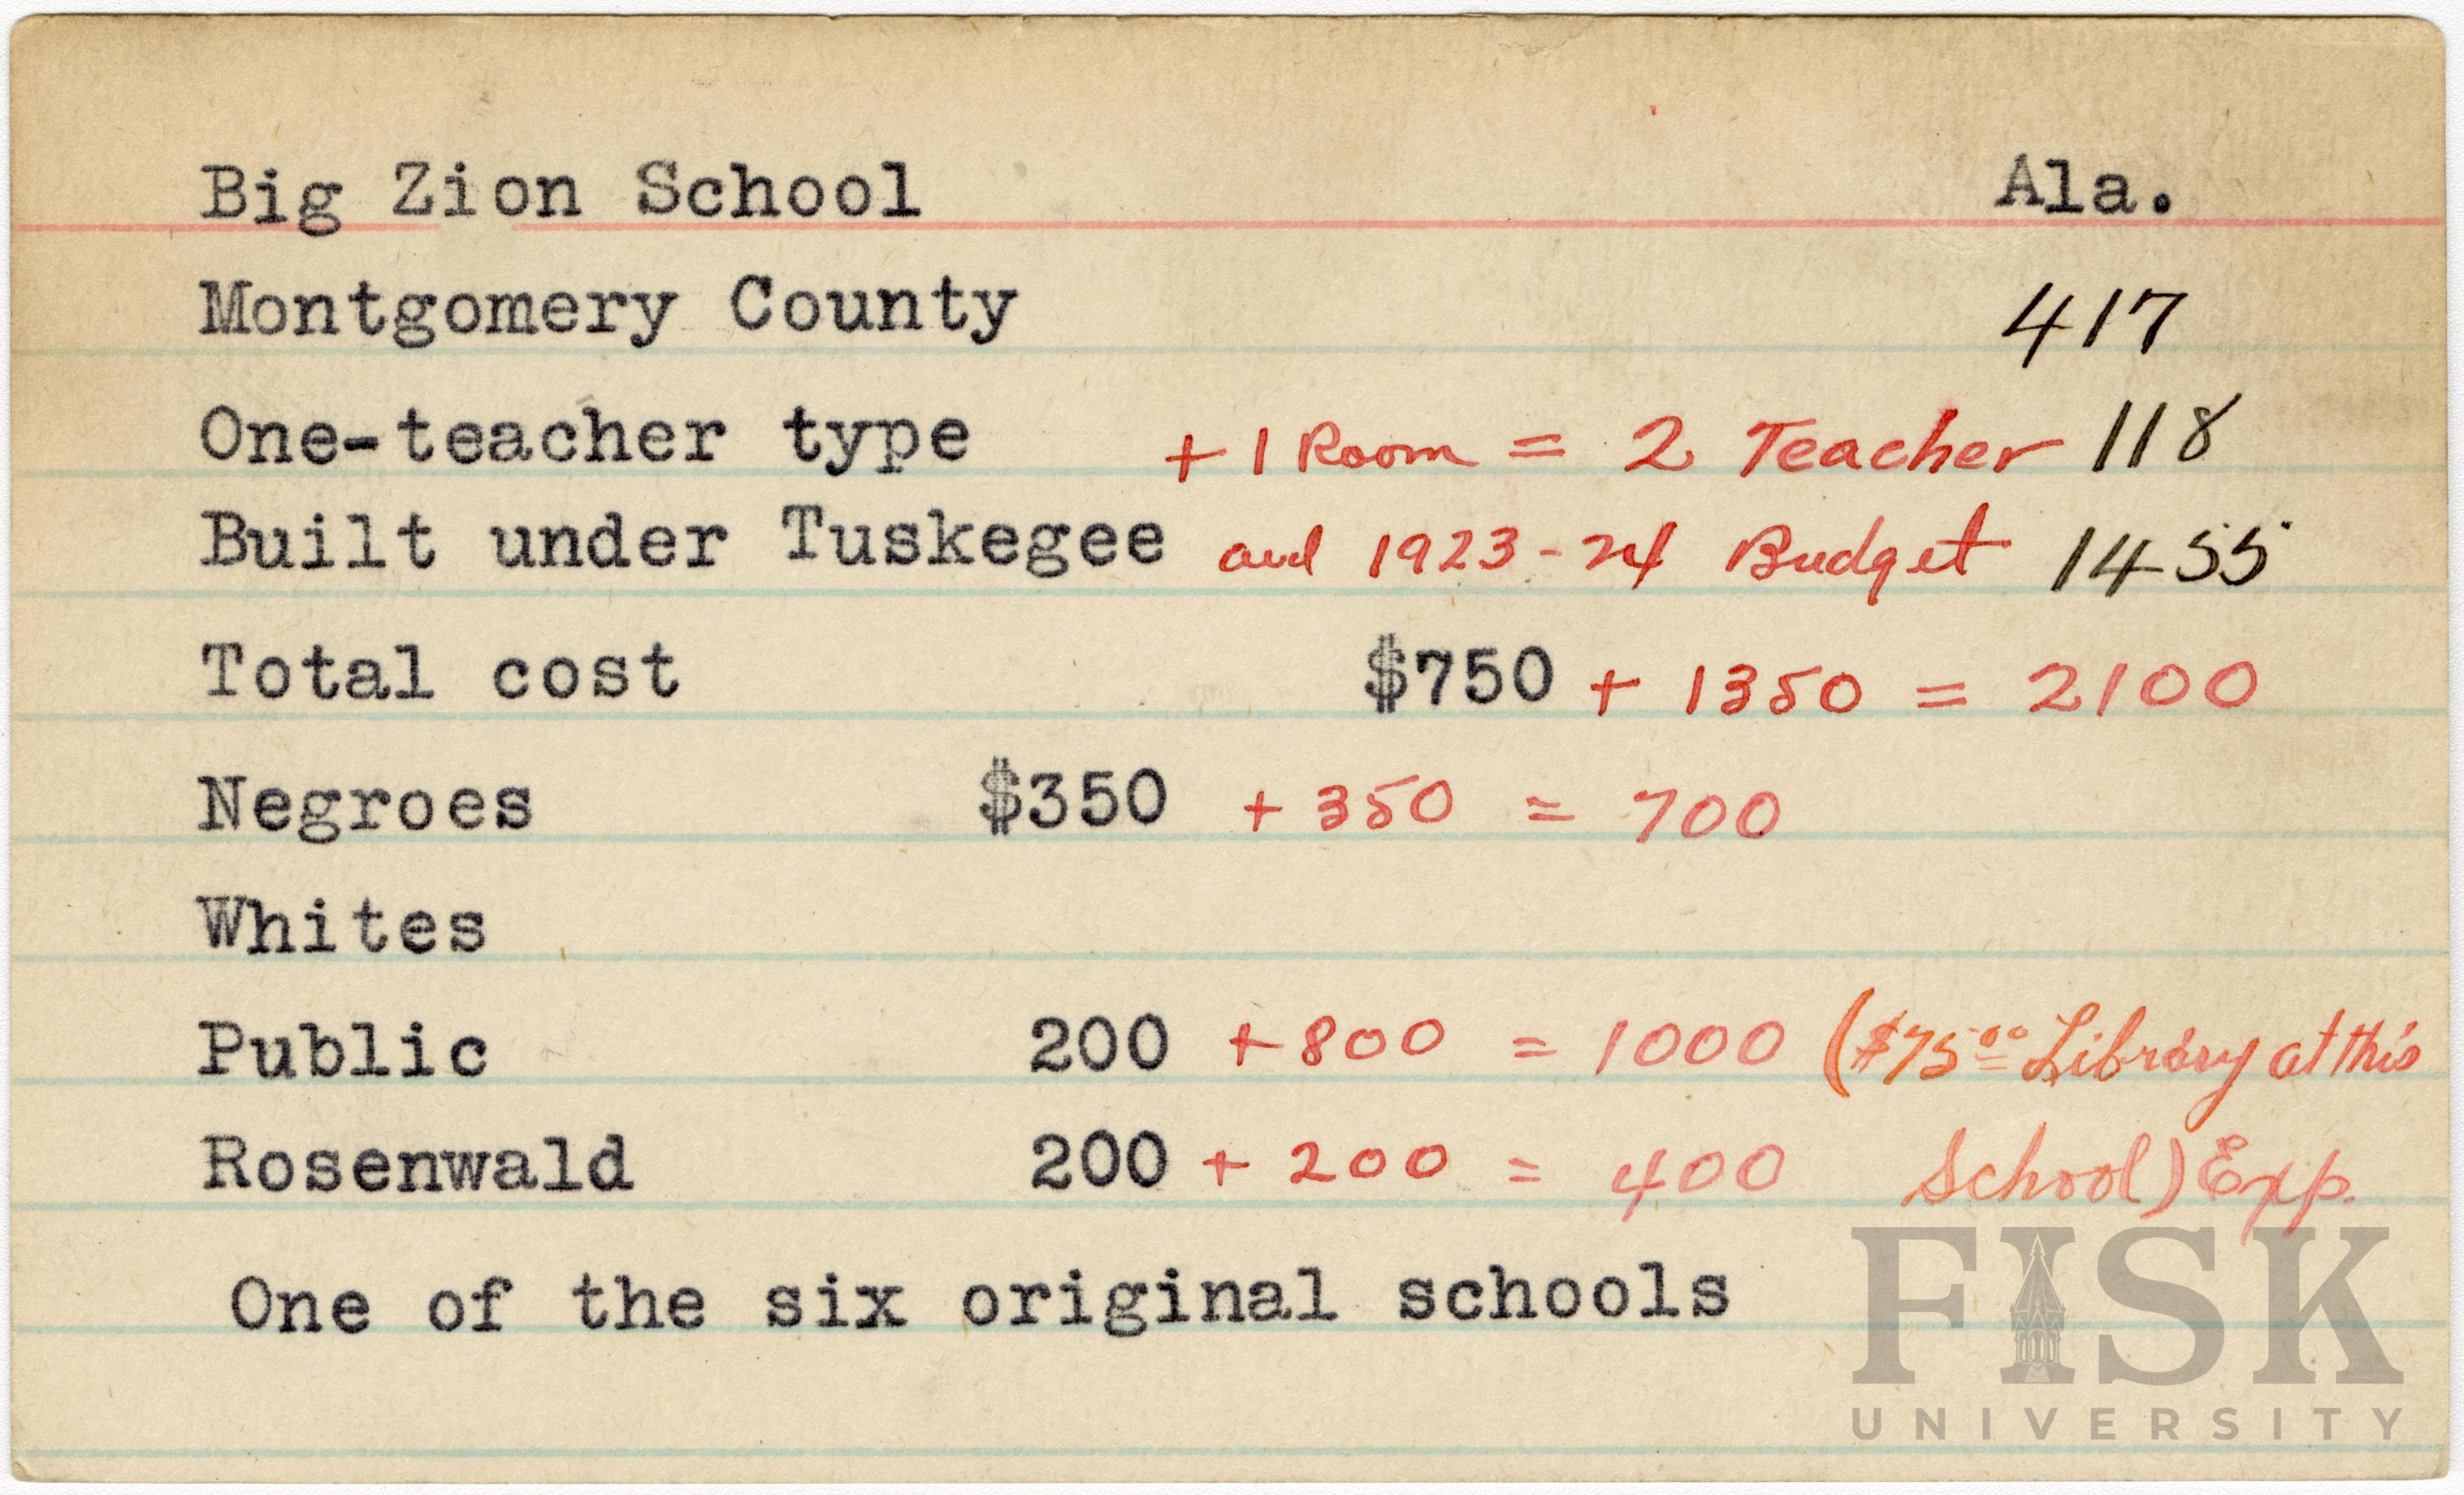 Big Zion School Ala.
Montgomery County 417
One-teacher type + 1 Room = 2 Teacher 118
Built under Tuskegee and 1923-24 Budget 1455
Total cost $750 + 1350 = 2100
Negroes $350 + 350 = 700
Whites
Public 200 + 800 = 1000 ($75.00 Library at this
Rosenwald 200 + 200 = 400 School) Exp.
One of the six original schools
FISK
UNIVERSITY